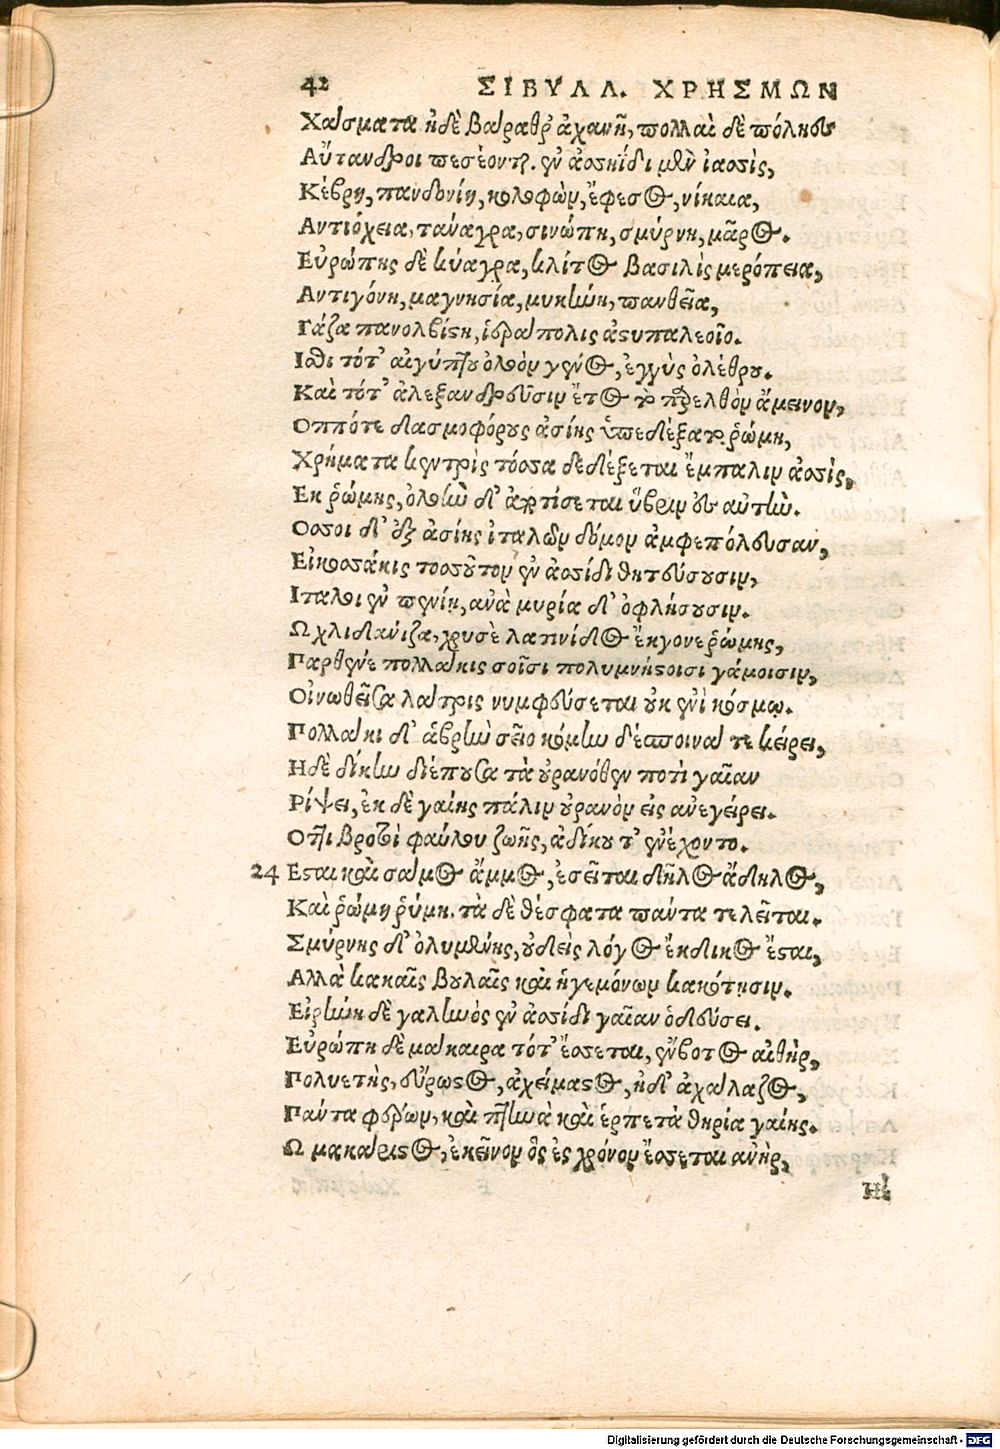 42 ΣΙΒΥΛΛ. ΧΡΗΣΜΩΝ
Χάσματα ἠδὲ βάραθρ᾽ ἀχανῆ, πολλαὶ δὲ πόληες
Αὔτανδροι πεσέονται. ἐν ἀσσηΐδι μὲν ἰασσὶς,
Κέβρη, πανδονίη, κολοφὼν, ἔφεσος, νίκαια,
Αντιόχεια, τάναγρα, σινώπη, σμύρνη, μᾶρος.
Εὐρώπης δὲ κύαγρα, κλίτος βασιλὶς μερόπεια,
Αντιγόνη, μαγνησία, μυκήνη, πανθεῖα,
Γάζα πανολβίστη, ἱεράπολις ἀστυπαλεοῖο.
Ισθι τότ᾽ αἰγύπτου ὀλοὸν γένος, ἐγγὺς ὀλέθρου.
Καὶ τότ᾽ ἀλεξανδρεῦσιν ἔτος τὸ παρελθὸν ἄμεινον,
Οππότε δασμοφόρους ἀσίης ὑπεδέξατο ῥώμη,
Χρήματα κεντρὶς τόσσα δεδέξεται ἔμπαλιν ἀσσὶς,
Εκ ῥώμης, ὀλοὴν δ᾽ ἀποτίσεται ὕβριν ἐς αὐτήν.
Οσσοι δ᾽ ἐξ ἀσίης ἰταλῶν δόμον ἀμφεπόλευσαν,
Εἰκοσάκις τοσοῦτον ἐν ἀσσίδι θητεύσουσιν,
Ιταλοι ἐν πενίῃ, ἀνὰ μυρία δ᾽ ὀφλήσουσιν.
Ω χλιδανίζα, χρυσὲ λατινίδος ἔκγονε ῥώμης,
Παρθένε πολλάκις σοῖσι πολυμνήστοισι γάμοισιν,
Οἰνωθεῖσα λάτρις νυμφεύσεται οὐκ ἐνὶ κόσμῳ.
Πολλάκι δ᾽ ἁβρὴν σεῖο κόμην δέσποινά τε κείρει,
Ηδὲ δίκην διέπουσα τὰ οὐρανόθεν ποτὶ γαῖαν
Ρίψει, ἐκ δὲ γαίης πάλιν οὐρανὸν εἰς ἀνεγείρει.
Οττι βροτοὶ φαύλου ζωῆς, ἀδίκου τ᾽ ἐνέχοντο.
24 Εσται καὶ σάμος ἄμμος, ἐσεῖται δῆλος ἄδηλος,
Καὶ ῥώμη ῥύμη. τὰ δὲ θέσφατα πάντα τελεῖται.
Σμύρνης δ᾽ ὀλυμένης, οὐδεὶς λόγος ἔκδικος ἔσται,
Αλλὰ κακαῖς βουλαῖς καὶ ἡγεμόνων κακότησιν.
Εἰρήνη δὲ γαληνὸς ἐν ἀσσίδι γαῖαν ὁδεύσει.
Εὐρώπη δὲ μάκαιρα τότ᾽ ἔσσεται, εὔβοτος αἰθὴρ,
Πολυετὴς, εὔρωστος, ἀχείμαστος, ἠδ᾽ ἀχάλαζος,
Πάντα φέρων, καὶ πτηνὰ καὶ ἑρπετὰ θηρία γαίης.
Ω μακάριστος, ἐκεῖνον ὃς ἐς χρόνον ἔσσεται ἀνὴρ,